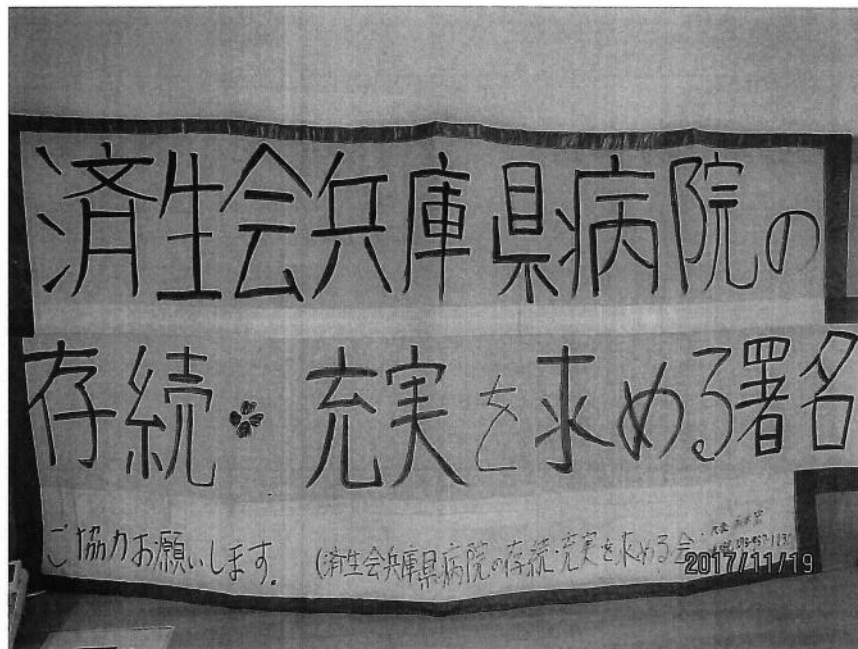 済生会兵庫県病院の
存続・充実を求める署名
ご協力お願いします.
(済生会兵庫県病院の存続・充実を求める会
2017/11/19